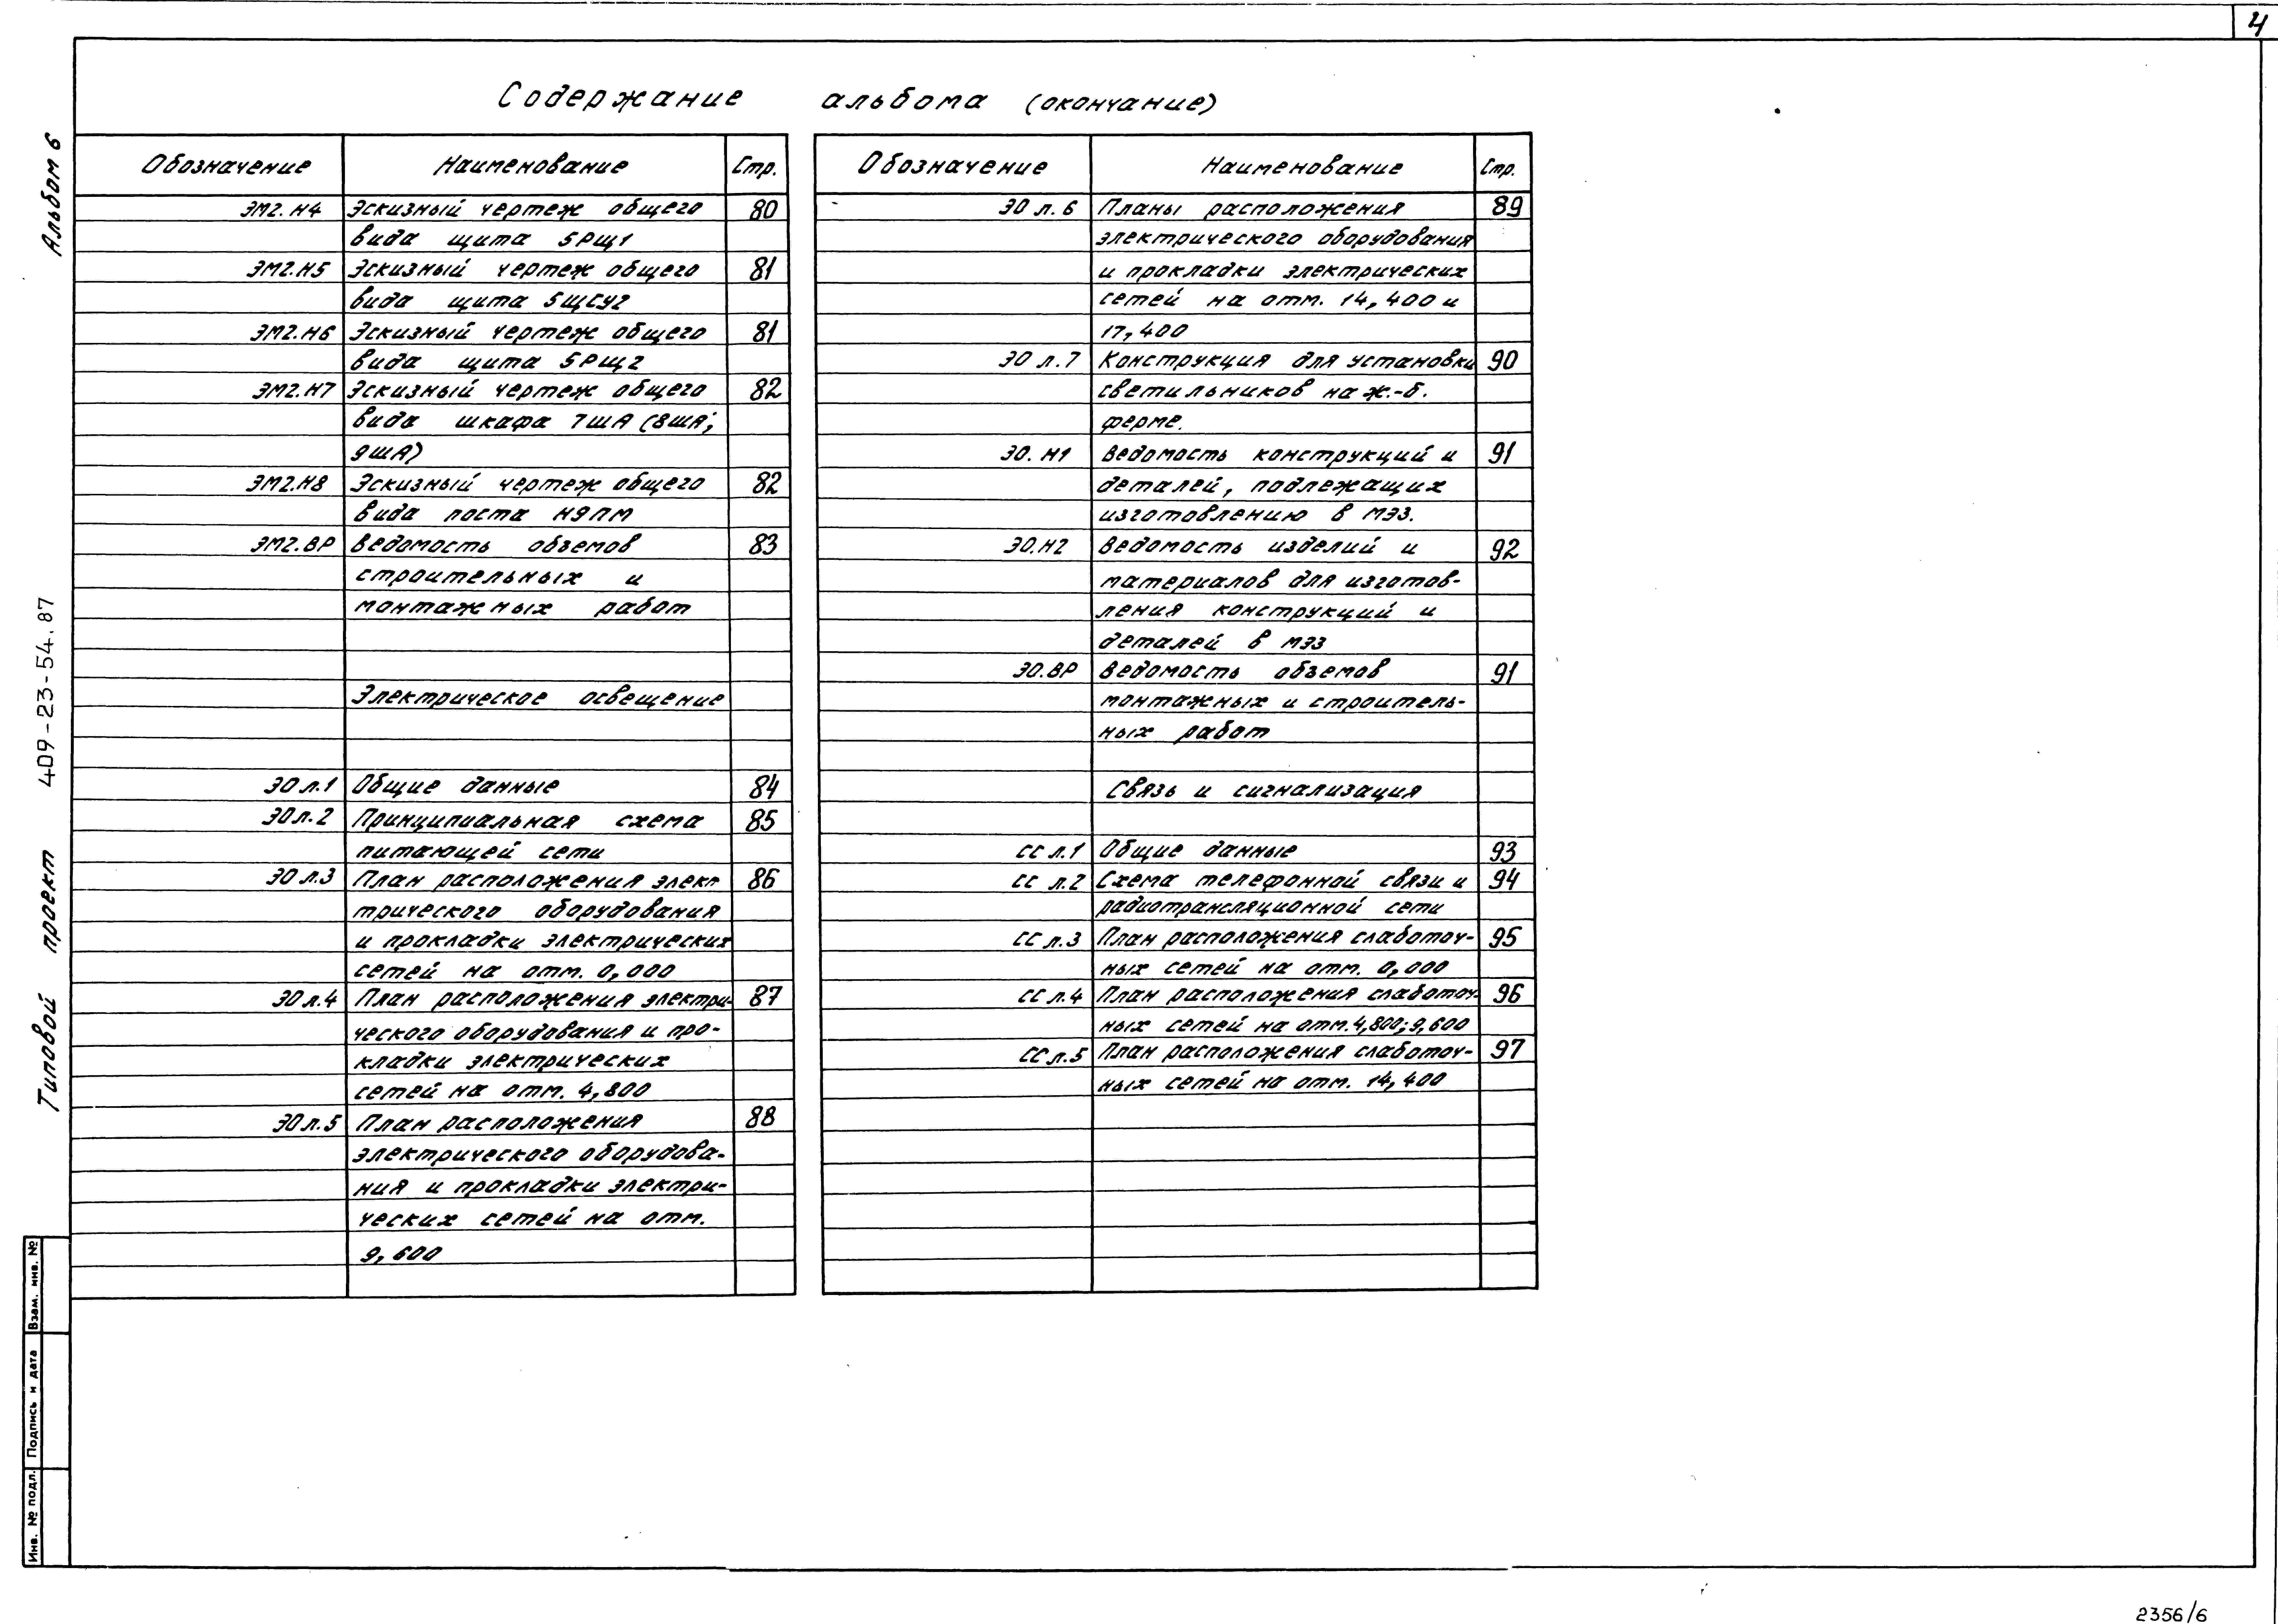 4
Содержание альбома (окончание)
Обозначение Наименование Стр.
ЭМ2.Н4 Эскизный чертеж общего 80
вида щита 5РЩ1
ЭМ2.Н5 Эскизный чертеж общего 81
вида щита 5ЩСУ2
ЭМ2.Н6 Эскизный чертеж общего 81
вида щита 5РЩ2
ЭМ2.Н7 Эскизный чертеж общего 82
вида шкафа 7ША (8ША;
9ША)
ЭМ2.Н8 Эскизный чертеж общего 82
вида поста Н9ПМ
ЭМ2.ВР Ведомость обземов 83
строительных и
монтажных работ
Электрическое освещение
ЭО л.1 Общие данные 84
ЭО л.2 Принципиальная схема 85
питающей сети
ЭО л.3 План расположения элек- 86
трического оборудования
и прокладки электрических
сетей на отм. 0,000
ЭО л.4 План расположения электри- 87
ческого оборудования и про-
кладки электрических
сетей на отм. 4,800
ЭО л.5 План расположения 88
электрического оборудова-
ния и прокладки электри-
ческих сетей на отм.
9,600
Обозначение Наименование Стр.
ЭО л.6 Планы расположения 89
электрического оборудования
и прокладки электрических
сетей на отм. 14,400 и
17,400
ЭО л.7 Конструкция для установки 90
светильников на ж.-б.
ферме.
ЭО.Н1 Ведомость конструкций и 91
деталей, подлежащих
изготовлению в МЭЗ.
ЭО.Н2 Ведомость изделий и 92
материалов для изготов-
ления конструкций и
деталей в МЭЗ
ЭО.ВР Ведомость обземов 91
монтажных и строитель-
ных работ
Связь и сигнализация
СС л.1 Общие данные 93
СС л.2 Схема телефонной связи и 94
радиотрансляционной сети
СС л.3 План расположения слаботоч- 95
ных сетей на отм. 0,000
СС л.4 План расположения слаботоч- 96
ных сетей на отм. 4,800; 9,600
СС л.5 План расположения слаботоч- 97
ных сетей на отм. 14,400
Типовой проект 409-23-54.87 Альбом 6
Инв. № подл. Подпись и дата Взам. инв. №
2356/6